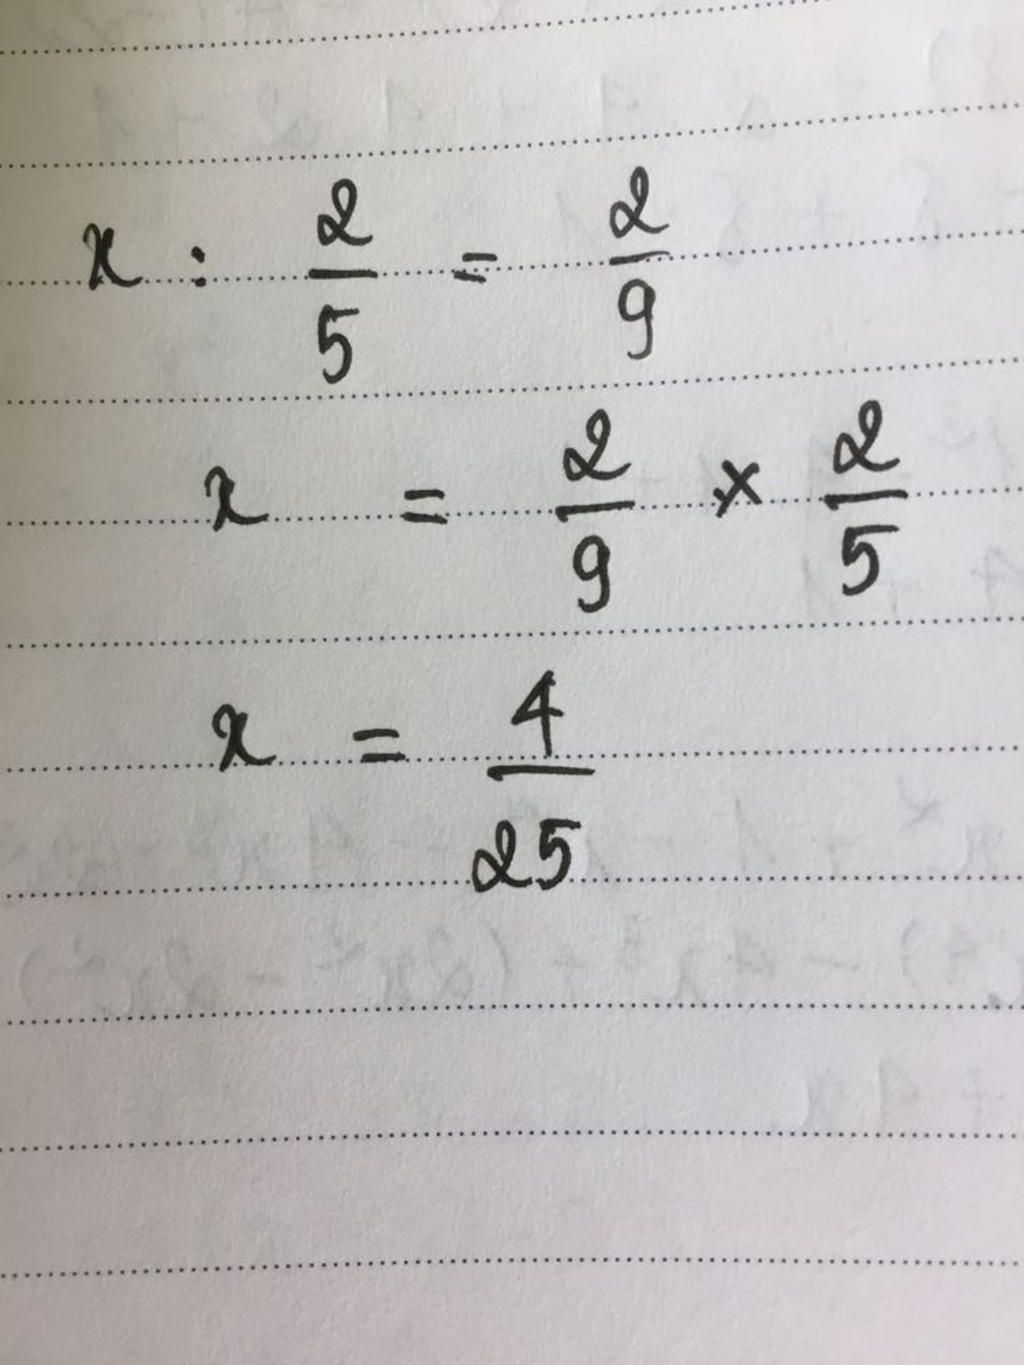 x : 2/5 = 2/9
x = 2/9 × 2/5
x = 4/25